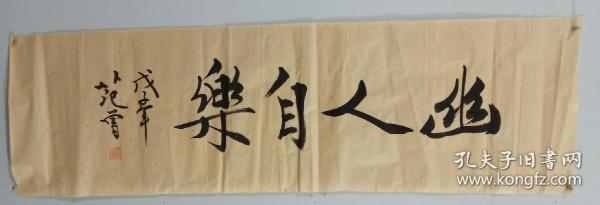 幽人自樂
戊子年
范曾
孔夫子旧书网
www.kongfz.com